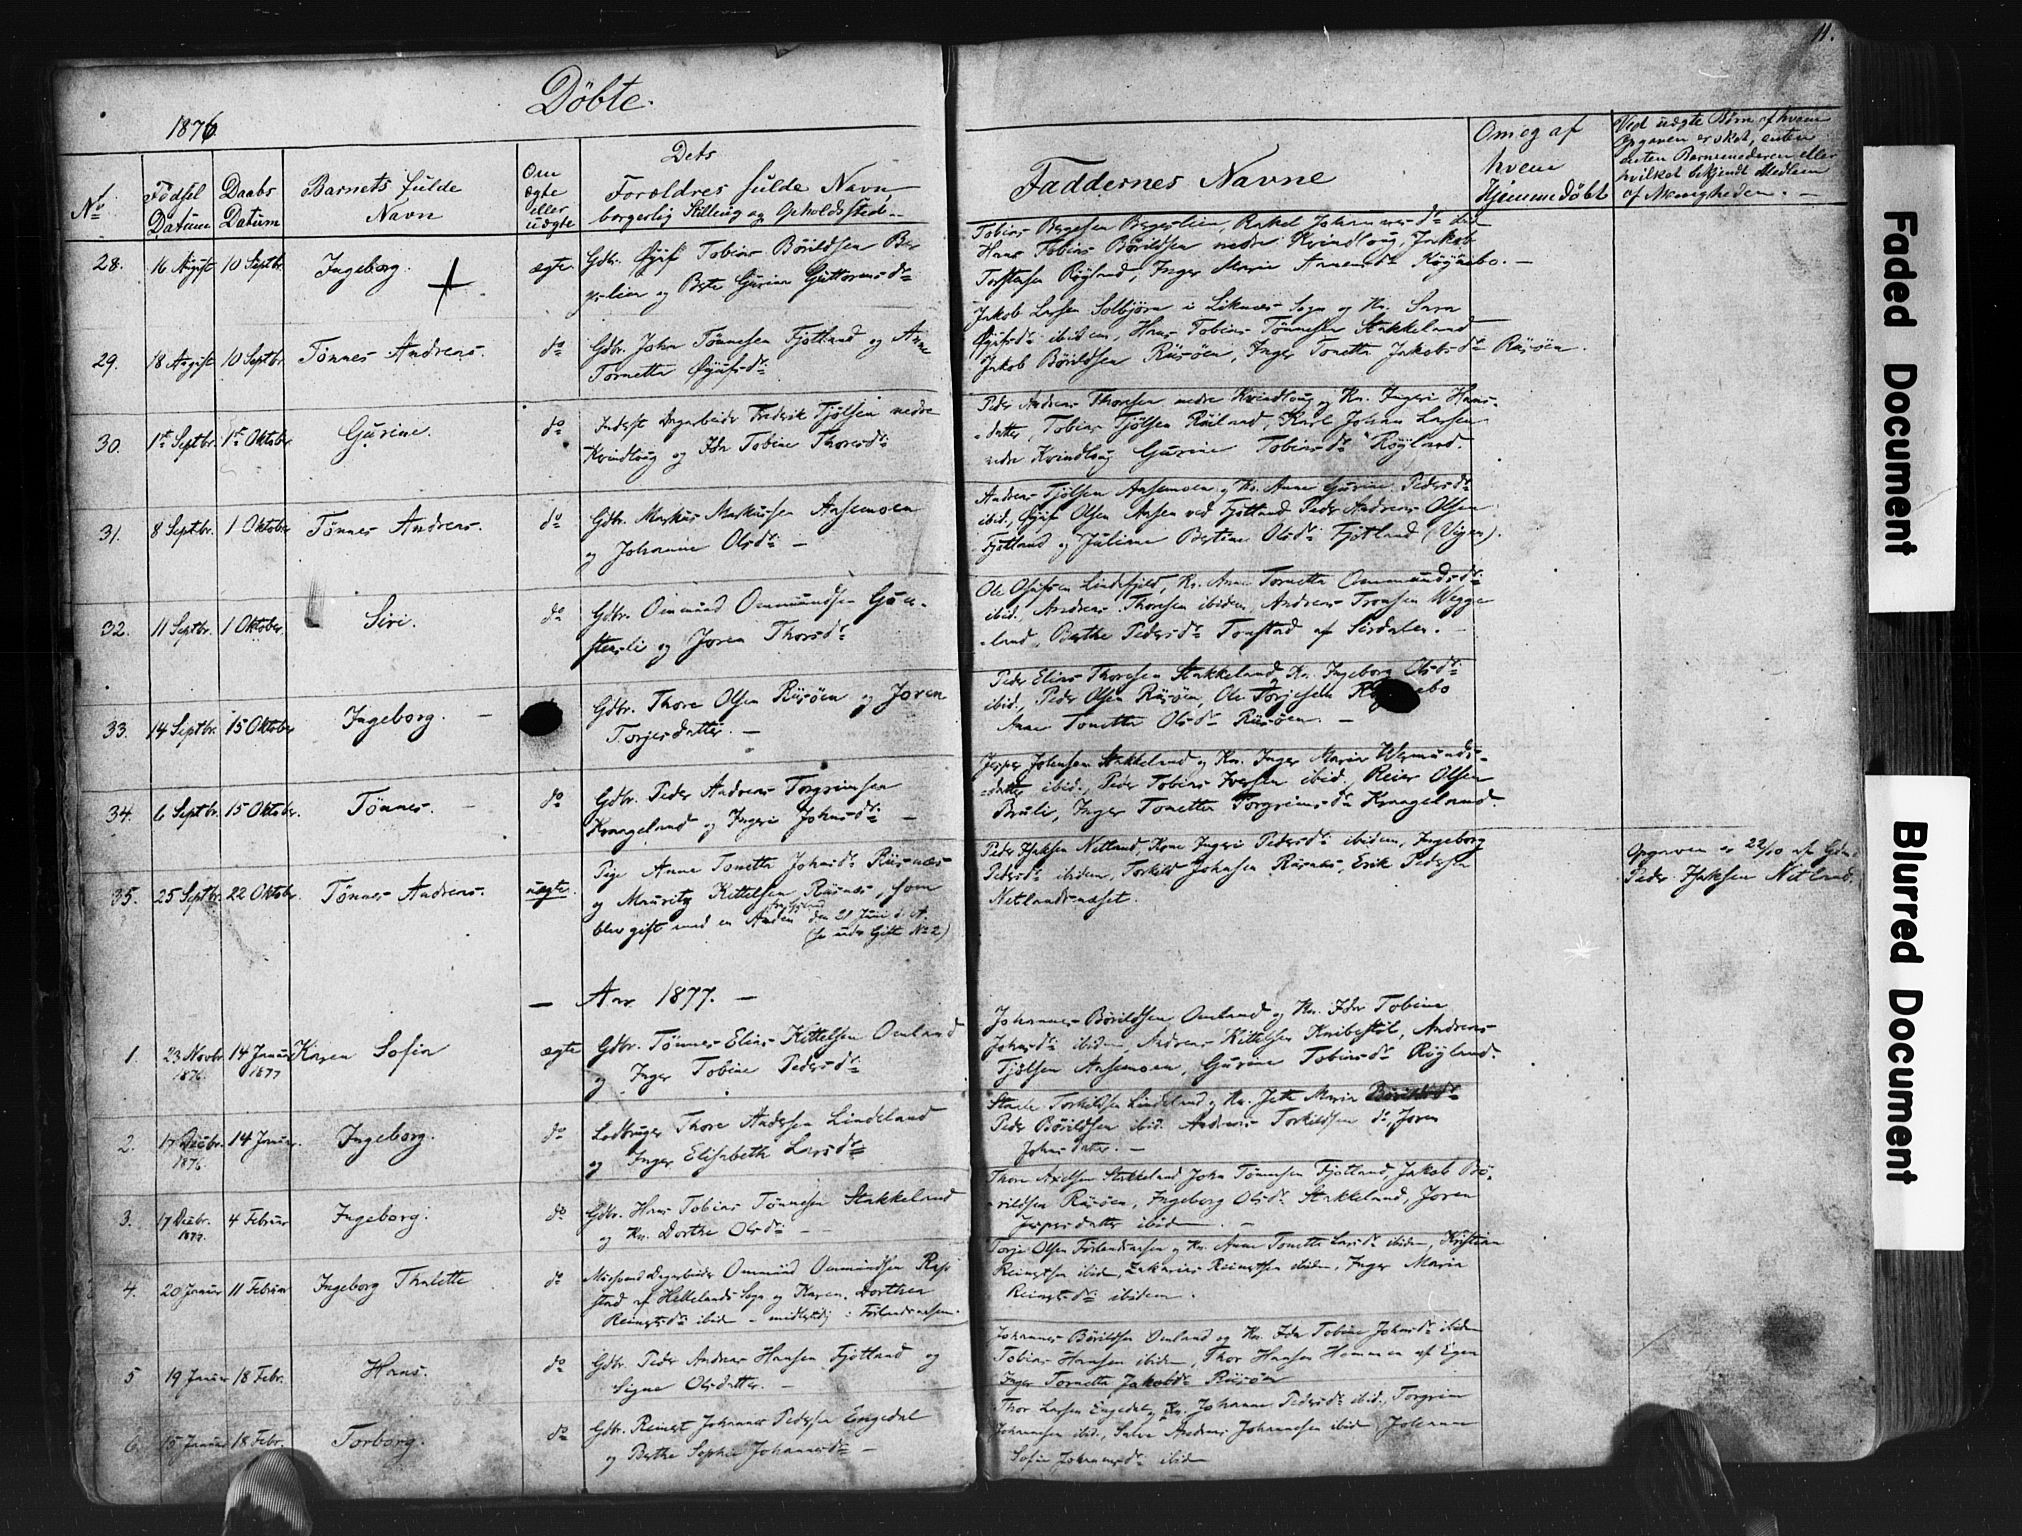 11.
Döbte.
1876
No
Födsel Datum
Daabs Datum
Barnets fulde Navn
Om ægte eller uægte
Dets Forældres fulde Navn, borgerlig Stilling og Opholdssted.
Faddernes Navne
Om og af hvem Hjemmedöbt
Ved uægte Börn af hvem Opgaven er skat, enten enten Barnemoderen eller hvilket bekjendt Medlem af Menigheden. -
28. 16 August 10 Septbr. Ingeborg. ægte Gdbr. Øyuf Tobias Börildsen Ber
gslien og Berte Gurine Guttormsdr
Tobias Bergesen Bergslien, Rakel Johannesdr ibid
Hans Tobias Börildsen nedre Kvindlaug, Jakob
Torstensen Röyland, Inger Marie Arnensdr Röynebo. -
29. 18 August 10 Septbr. Tönnes Andreas. do Gdbr. John Tönnesen Fjotland og Anne
Tornette Øyufsdr
Jakob Larsen Solbjörn i Liknes Sogn og Kn. Sara
Øyufsdr ibidem, Hans Tobias Tönnesen Stakkeland
Jakob Börildsen Risöen, Inger Tonette Jakobsdr Risöen.
30. 1st Septbr. 1st Oktober Gurine. do Inderst Dagarbeider Fredrik Tjölsen nedre
Kvindlaug og Ida Tobine Thorsdr
Peder Andreas Thorsen nedre Kvindlaug og Kn. Ingeri Hans-
datter, Tobias Tjölsen Röiland, Karl Johan Larsen
nedre Kvindlaug Gurine Tobiasdr Röyland.
31. 8 Septbr. 1 Oktober Tönnes Andreas. do Gdbr. Markus Markussen Aasemoen
og Johanne Olsdr -
Andreas Tjölsen Aasemoen og Kn. Anne Gurine Pedersdr
ibid., Øyuf Olsen Aasen ved Fjotland Peder Andreas Olsen
Fjotland og Juliane Bertine Olsdr Fjotland (Pigen).
32. 11 Septbr. 1 Oktober. Siri. do Gdbr. Omund Ommundsen Gjen-
stenli og Joren Thorsdr
Ole Olufsen Lindefjeld, Kn. Anne Tornette Ommundsdr
ibid., Andreas Thorsen ibidem, Andreas Tronsen Wegge
land, Berthe Pedersdr Tonstad af Sirdalen. -
33. 14 Septbr. 15 Oktober Ingeborg. - Gdbr. Thore Olsen Risöen og Joren
Torjesdatter. -
Peder Elias Thoresen Stakkeland og Kn. Ingeborg Olsdr
ibid., Peder Olsen Risöen, Ole Torjesen
Anne Tonette Olsdr Risöen. -
34. 6 Septbr. 15 Oktober. Tönnes. - do Gdbr. Peder Andreas Torgrimsen
Kraageland og Ingeri Johnsdr -
Jesper Johnsen Stakkeland og Kn. Inger Marie Wermunds-
datter ibid., Peder Tobias Iversen ibid., Reier Olsen
Bruli, Inger Tonette Torgrimsdr Kraageland.
35. 25 Septbr. 22 Oktober. Tönnes Andreas. uægte. Pige Anne Tonette Johnsdr Risnæs
og Mauritz Kittelsen Risnæs, som
blev gift med en Anden den 21 Juni d. A.
(se udr Gifte No 2)
Peder Isaksen Netland, Kone Ingeri Pedersdr ibidem, Ingeborg
Pedersdr ibidem, Torkild Johnsen Risnes, Erik Pedersen
Netlandsnæset.
Opgaven er 22/10 af Gdbr.
Peder Isaksen Netland.
- Aar 1877. -
1. 23 Novbr. 1876. 14 Januar 1877 Karen Sofia ægte Gdbr. Tönnes Elias Kittelsen Omland
og Inger Tobine Pedersdr
Johannes Börildsen Omland og Kn. Ida Tobine
Johnsdr ibidem, Andreas Kittelsen Knibestöl, Andreas
Tjölsen Aasemoen, Gurine Tobiasdr Röyland.
2. 17 Decbr. 1876 14 Januar. Ingeborg. do Lodbruger Thore Andersen Lindeland
og Inger Elisabeth Larsdr
Staale Torkildsen Lindeland og Kn. Jete Marie Börildsdr
Peder Börildsen ibid. Andreas Torkildsen do, Joren
Johnsdatter. -
3. 17 Decbr. 1877. 4 Februar Ingeborg. do Gdbr. Hans Tobias Tönnesen Stakkeland
og Kn. Dorthe Olsdr -
Thore Axelsen Stakkeland John Tönnesen Fjotland, Jakob Bö-
rildsen Risöen, Ingeborg Olsdr Stakkeland, Joren
Jespersdatter ibidem. -
4. 20 Januar 11 Februar Ingeborg Thalette do Dagarbeider Ommund Ommundsen Røp
stad af Hellelands Sogn og Karen Dorthea
Reinertsdr ibidem - midlertidig i Förlandsaasen.
Torje Olsen Förlandsaasen og Kn. Anne Tonette Larsdr ibidem, Kristian
Reinertsen ibidem, Zakarias Reinertsen ibidem, Inger Maria
Reinertsdr ibidem.
5 19 Januar 18 Febr. Hans. do Gdbr. Peder Andreas Hansen Fjotland og
Signe Olsdatter. -
Johannes Börildsen Omland og Kn. Ida Tobine Johnsdr ibidem
Tobias Hansen ibidem, Thor Hansen Hommen af Egen
Inger Tornette Jakobsdr Risöen
6. 15 Januar 18 Febr. Torborg. do Gdbr. Reinert Johannes Pedersen Engedal
og Berthe Sophie Johannesdr -
Thor Larsen Engedal og Kn. Johanne Pedersdr ibid., Torgrim
Johannesen ibid., Salve Andreas Johannesen ibidem, Johanne
Sofie Johannesdr ibid
Faded Document
Blurred Document